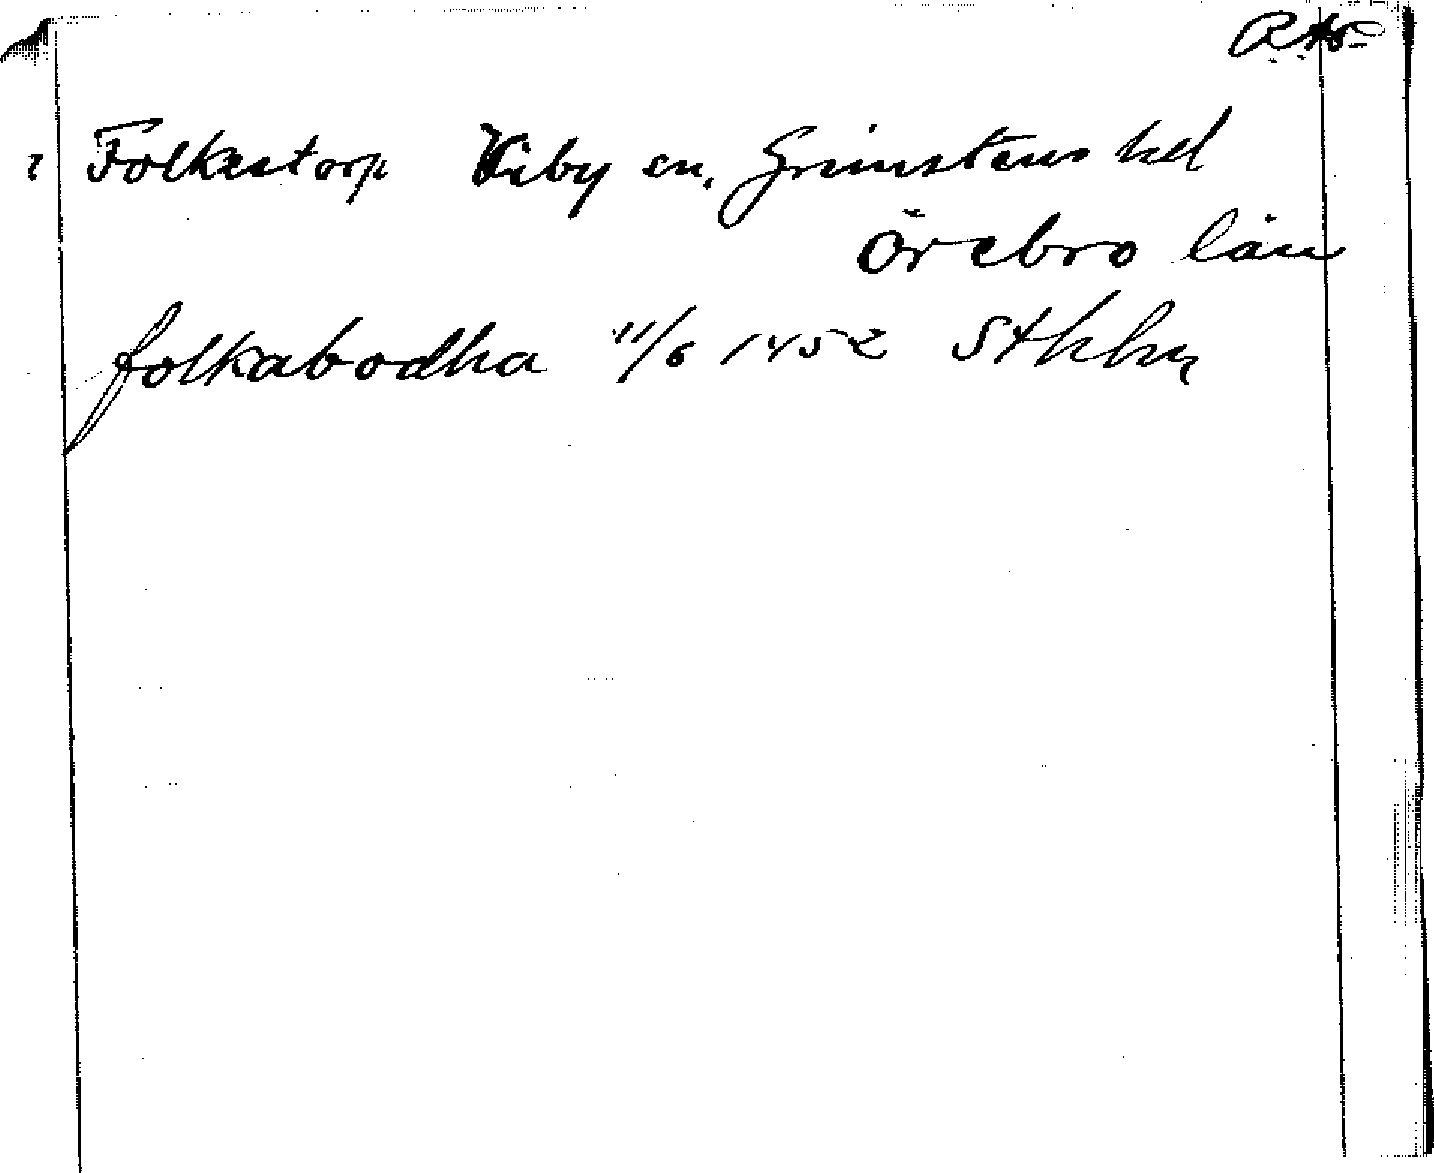 ? Folkestorp Viby sn, Grimstens hd
Örebro län
folkabodha 11/6 1452 Sthlm